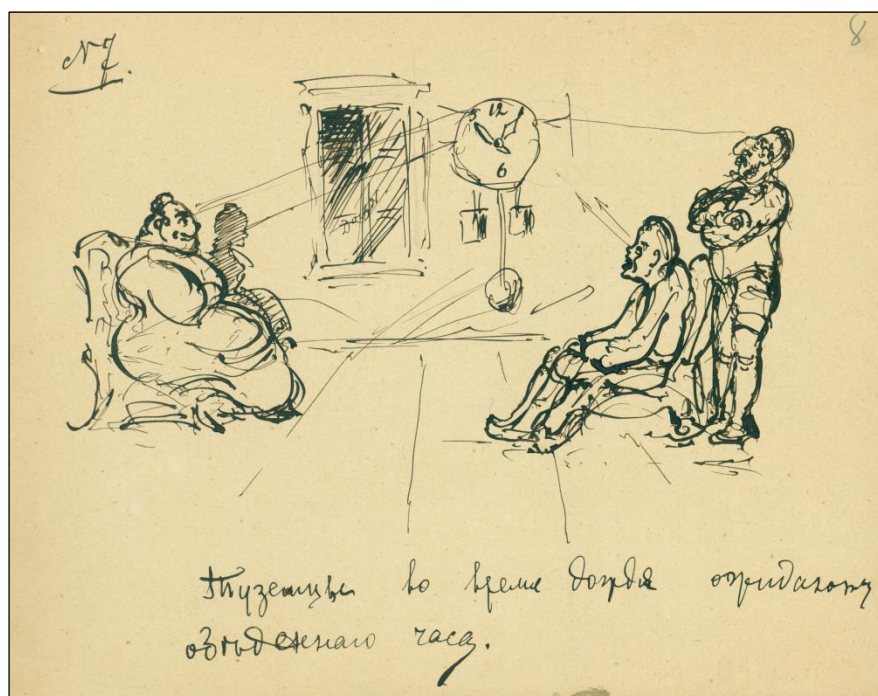 N 7.
8
12
6
Туземцы во время дождя ожидаютъ
обѣденнаго часа.